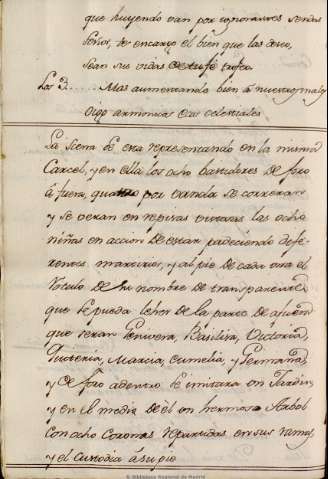 que huyendo van por ignorantes sendas
señor, te encargo el bien que las deseo,
sean sus vidas de tu fé trofeo.
Los 3. Mas aumentando bien á nuestro mal,
Oigo armonicas ecos celestiales
La Scena se esta representando en la misma
Carcel, y en ella los ocho bastidores de foro
á fuera, quatro por vanda se correran
y se veran en repisas vistosas las ocho
niñas en accion de estar padeciendo dife-
rentes martirios, y al pie de cada una el
rotulo de su nombre de transparente
que se pueda leher de la parte de afuera
que seran Genivera, Basilisa, Victoria,
Quiteria, Marcia, Eumelia, y Germana,
y de foro adentro se imitara un Jardin,
y en el medio de el un hermoso Arbol
con ocho Coronas repartidas en sus ramas,
y el custodia á su pie
© Biblioteca Nacional de Madrid